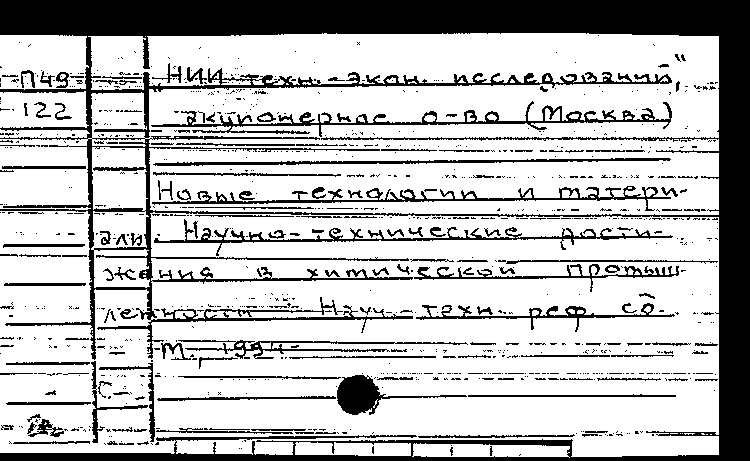 П49 "НИИ техн.-экон. исследований",
122 акционерное о-во (Москва)
Новые технологии и матери-
алы. Научно-технические дости-
жения в химической промыш-
ленности Науч.-техн. реф. сб.
М., 1994-
С